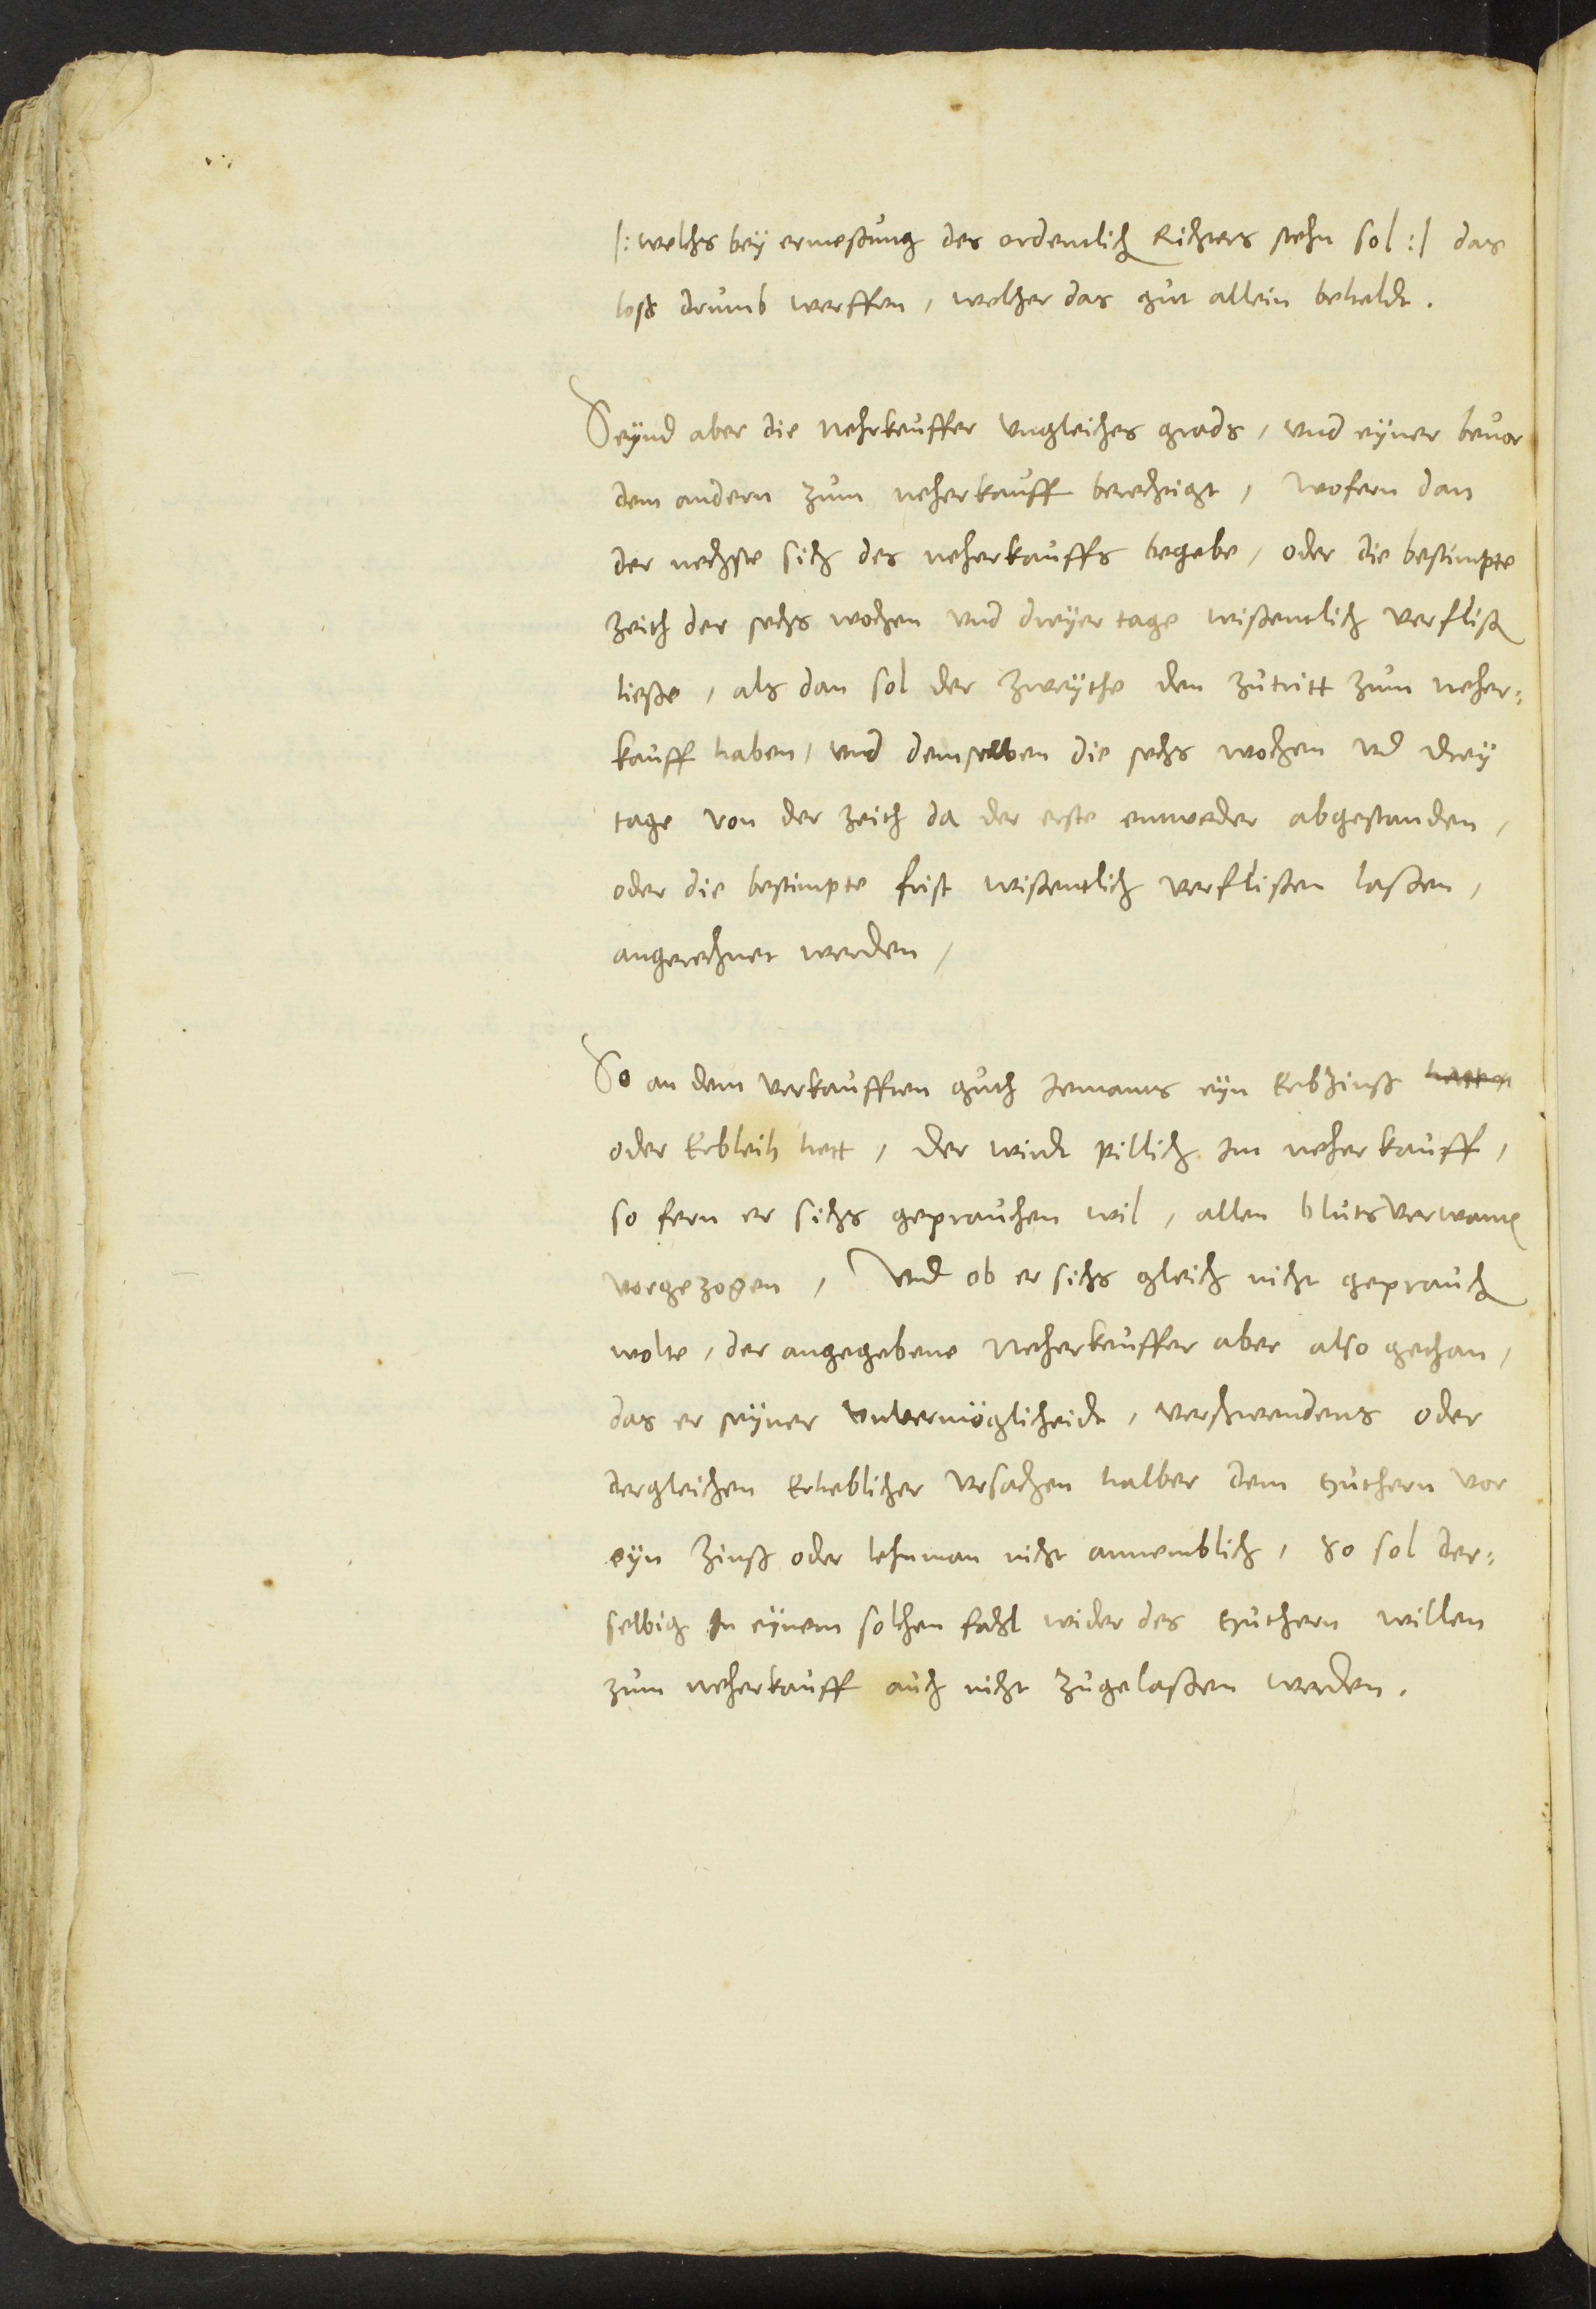 |: welchs bey ermeßung des ordentlich Richters stehn sol :| das
loß drumb werffen, welcher das gut allein beheldt.
Seynd aber die nehrkeuffer vngleiches grads, vnd eyner beuor
dem andern zum neherkauff berechtigt, wofern dan
der nechste sich des neherkauffs begebe, oder die bestimpte
zeith der sechs wochen vnd dreyer tage wißentlich verfliß
ließe, als dan sol der zweythe den zutritt zum neher=
kauff haben, vnd demselben die sechs wochen vd drey
tage von der zeith da der erste entweder abgestanden,
oder die bestimpte frist wißentlich verflißen laßen,
angerechnet werden,
So an dem verkaufften guth Jemants eyn Erbzinß hetten
oder Erbleih hett, der wirdt pillich Im neherkauff,
so fern er sichs geprauchen wil, allen blutsverwant
vorgezogen, Vnd ob er sichs gleich nicht geprauch
wolte, der angegebene neherkeuffer aber also gethan,
das er seyner vnvermöglicheidt, verschwendens oder
dergleichen Erheblicher vrsachen halber dem Guthern vor
eyn Zinß oder lehnman nicht annemblich, so sol der=
selbig In eynem solchen fahl wider des Guthern willen
zum neherkauff auch nicht zugelaßen werden.